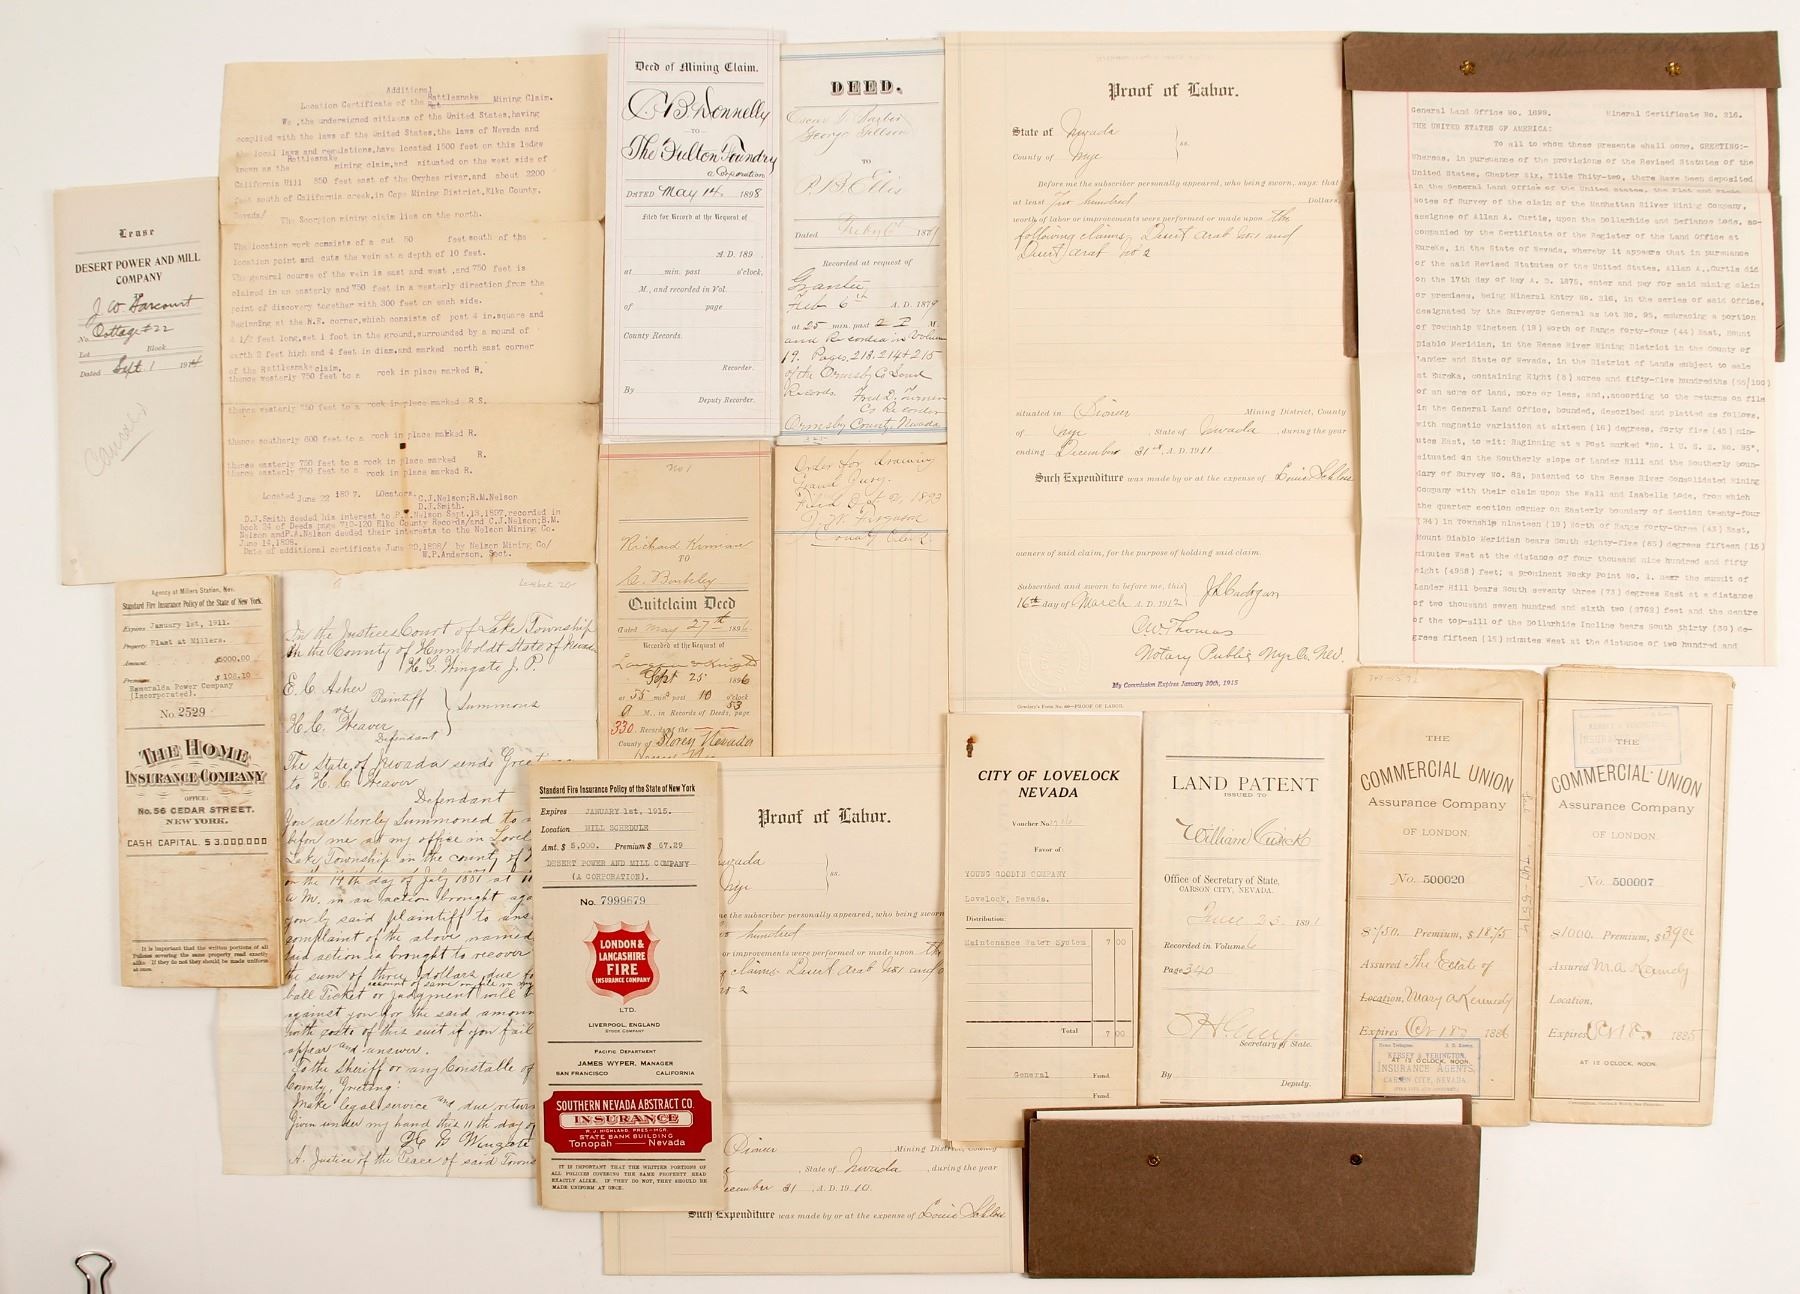 Lease
DESERT POWER AND MILL
COMPANY
J. W. Harcourt
No. Cottage #22
Lot Block
Dated Sept. 1 191
Additional
Location Certificate of the Rattlesnake Mining Claim.
We, the undersigned citizens of the United States, having
complied with the laws of the United States, the laws of Nevada and
the local laws and regulations, have located 1500 feet on this ledge
known as the Rattlesnake mining claim, and situated on the west side of
California Hill 850 feet east of the Owyhee river, and about 2200
feet south of California creek, in Cope Mining District, Elko County,
Nevada/ The Scorpion mining claim lies on the north.
The location work consists of a cut 50 feet south of the
location point and cuts the vein at a depth of 10 feet.
The general course of the vein is east and west, and 750 feet is
claimed in an easterly and 750 feet in a westerly direction from the
point of discovery together with 300 feet on each side.
Beginning at the N.E. corner, which consists of post 4 in. square and
4 1/2 feet long, set 1 foot in the ground, surrounded by a mound of
earth 2 feet high and 4 feet in diam. and marked north east corner
of the Rattlesnake claim,
thence westerly 750 feet to a rock in place marked R.
thence westerly 750 feet to a rock in place marked R S.
thence southerly 600 feet to a rock in place marked R.
thence easterly 750 feet to a rock in place marked R.
thence easterly 750 feet to a rock in place marked R.
Located June 22 1897. Locators. C.J.Nelson;B.M.Nelson
D.J.Smith.
D.J.Smith deeded his interest to P.A.Nelson Sept.13,1897,recorded in
book 24 of Deeds page 710-120 Elko County Records/and C.J.Nelson;B.M.
Nelson and P.A.Nelson deeded their interests to the Nelson Mining Co.
June 14,1898.
Date of additional certificate June 20,1898/ by Nelson Mining Co/
W.P.Anderson, Sect.
Deed of Mining Claim.
C. B. Donnelly
TO
The Fulton Foundry
a Corporation
DATED May 14, 1898
Filed for Record at the Request of
A.D. 189
at min. past o'clock,
M., and recorded in Vol.
of page
County Records.
Recorder.
By
Deputy Recorder.
DEED.
George Gillson
TO
P. B. Ellis
Dated Feby 6th 187
Recorded at request of
Grantee
Feb 6th A. D. 1879
at 25 min. past 2 P M.
and Recorded in Volume
19. Pages, 213, 214 & 215
of the Ormsby Co Land
Records. Fred D. Turner
Co Recorder
Ormsby County, Nevada
Proof of Labor.
State of Nevada
County of Nye
ss.
Before me the subscriber personally appeared, who being sworn, says: that
at least two hundred Dollars,
worth of labor or improvements were performed or made upon the
following claims, Desert arab No 1 and
Desert arab No 2
situated in Pioneer Mining District, County
of Nye, State of Nevada, during the year
ending December 31st, A. D. 1911.
Such Expenditure was made by or at the expense of Louis Schloss
owners of said claim, for the purpose of holding said claim.
Subscribed and sworn to before me, this
16th day of March A. D. 1912
J L Cadogan
O W Thomas
Notary Public Nye Co. Nev.
My Commission Expires January 30th, 1915
General Land Office No. 1699. Mineral Certificate No. 216.
THE UNITED STATES OF AMERICA:
To all to whom these presents shall come, GREETING:-
Whereas, in pursuance of the provisions of the Revised Statutes of the
United States, Chapter Six, Title Thity-two, there have been deposited
in the General Land Office of the United States, the Plat and Field
Notes of Survey of the claim of the Manhattan Silver Mining Company,
assignee of Allan A. Curtis, upon the Dollarhide and Defiance Lode, ac-
companied by the Certificate of the Register of the Land Office at
Eureka, in the State of Nevada, whereby it appears that in pursuance
of the said Revised Statutes of the United States, Allan A. Curtis did
on the 17th day of May A. D. 1875, enter and pay for said mining claim
or premises, being Mineral Entry No. 216, in the series of said Office,
designated by the Surveyor General as Lot No. 95, embracing a portion
of Township Nineteen (19) North of Range forty-four (44) East, Mount
Diablo Meridian, in the Reese River Mining District in the County of
Lander and State of Nevada, in the District of Lands subject to sale
at Eureka, containing Eight (8) acres and fifty-five hundredths (55/100)
of an acre of land, more or less, and, according to the returns on file
in the General Land Office, bounded, described and platted as follows,
with magnetic variation at sixteen (16) degrees, forty five (45) min-
utes East, to wit: Beginning at a Post marked "No. 1 U. S. L. No. 95",
situated on the Southerly slope of Lander Hill and the Southerly boun-
dary of Survey No. 82, patented to the Reese River Consolidated Mining
Company with their claim upon the Wall and Isabella Lode, from which
the quarter section corner on Easterly boundary of Section twenty-four
(24) in Township nineteen (19) North of Range forty-three (43) East,
Mount Diablo Meridian bears South eighty-five (85) degrees fifteen (15)
minutes West at the distance of four thousand nine hundred and fifty
eight (4958) feet; a prominent Rocky Point No. 1. near the summit of
Lander Hill bears South seventy three (73) degrees East at a distance
of two thousand seven hundred and sixty two (2762) feet and the centre
of the top-sill of the Dollarhide Incline bears South thirty (30) de-
grees fifteen (15) minutes West at the distance of two hundred and
No 1
Richard Kirman
TO
C. Barkley
Quitclaim Deed
Dated May 27th 1896
Recorded at the Request of
Sept 25 1896
at 55 min. past 10 o'clock
A M., in Records of Deeds, page 53
330. Records of the
County of Storey Nevada
Order for Drawing
Grand Jury.
Filed Oct 2, 1893
County Clerk.
Agency at Millers Station, Nev.
Standard Fire Insurance Policy of the State of New York.
Expires January 1st, 1911.
Property Plant at Millers.
Amount $5000.00
Premium $ 108.10
Esmeralda Power Company
(Incorporated).
No. 2529
THE HOME
INSURANCE COMPANY
OFFICE:
No. 56 CEDAR STREET.
NEW YORK.
CASH CAPITAL $3,000,000
It is important that the written portions of all
Policies covering the same property read exactly
alike. If they do not they should be made uniform
at once.
In the Justices Court of Lake Township
In the County of Humboldt State of Nevada
H. G. Wingate J. P.
E. C. Asher
Plaintiff
vs
H. C. Heaver
Defendant
Summons
The State of Nevada sends Greet
to H. C. Heaver
Defendant
You are hereby Summoned to
before me at my office in Lovel
Lake Township in the county of
on the 19th day of July 1881 at 11
a M. in an action brought aga
you by said plaintiff to ans
complaint of the above named
said action is brought to recover
the sum of three dollars due
ball Ticket or judgment will
against you for the said amoun
with costs of this suit if you fail
appear and answer.
To the Sheriff or any Constable of
County, Greeting:
Make legal service and due return
Given under my hand this 11th day of
H G Wingate
A. Justice of the Peace of said Towns
Standard Fire Insurance Policy of the State of New York
Expires JANUARY 1st, 1915.
Location MILL SCHEDULE
Amt. $ 5,000. Premium $ 67.29
DESERT POWER AND MILL COMPANY
(A CORPORATION).
No. 7999679
LONDON &
LANCASHIRE
FIRE
INSURANCE COMPANY
LTD.
LIVERPOOL, ENGLAND
STOCK COMPANY
PACIFIC DEPARTMENT
JAMES WYPER, MANAGER
SAN FRANCISCO CALIFORNIA
SOUTHERN NEVADA ABSTRACT CO.
INSURANCE
R. J. HIGHLAND, PRES-MGR.
STATE BANK BUILDING
Tonopah Nevada
IT IS IMPORTANT THAT THE WRITTEN PORTIONS OF
ALL POLICIES COVERING THE SAME PROPERTY READ
EXACTLY ALIKE. IF THEY DO NOT, THEY SHOULD BE
MADE UNIFORM AT ONCE.
Proof of Labor.
Nevada
Nye
ss.
me the subscriber personally appeared, who being sworn
two hundred
or improvements were performed or made upon the
claims Desert arab No 1 and
No 2
Pioneer Mining District, County
, State of Nevada, during the year
December 31, A. D. 1910.
Such Expenditure was made by or at the expense of Louis Schloss
CITY OF LOVELOCK
NEVADA
Voucher No.
Favor of:
YOUNG GOODIN COMPANY
Lovelock, Nevada.
Distribution:
Maintenance Water System 7 00
Total 7 00
General Fund.
Fund.
LAND PATENT
ISSUED TO
William Cusick
Office of Secretary of State,
CARSON CITY, NEVADA.
June 23, 1891
Recorded in Volume 6
Page 340
Secretary of State.
By
Deputy.
THE
COMMERCIAL UNION
Assurance Company
OF LONDON.
No. 500020
$750. Premium, $18.75
Assured The Estate of
Location, Mary A Kennedy
Expires Oct 18th 1886
AT 12 O'CLOCK, NOON.
KERSEY & YERINGTON,
INSURANCE AGENTS,
CARSON CITY, NEVADA.
THE
COMMERCIAL UNION
Assurance Company
OF LONDON.
No. 500007
$1000. Premium,
Assured M. A. Kennedy
Location,
Expires Oct 18th 1885
AT 12 O'CLOCK, NOON.